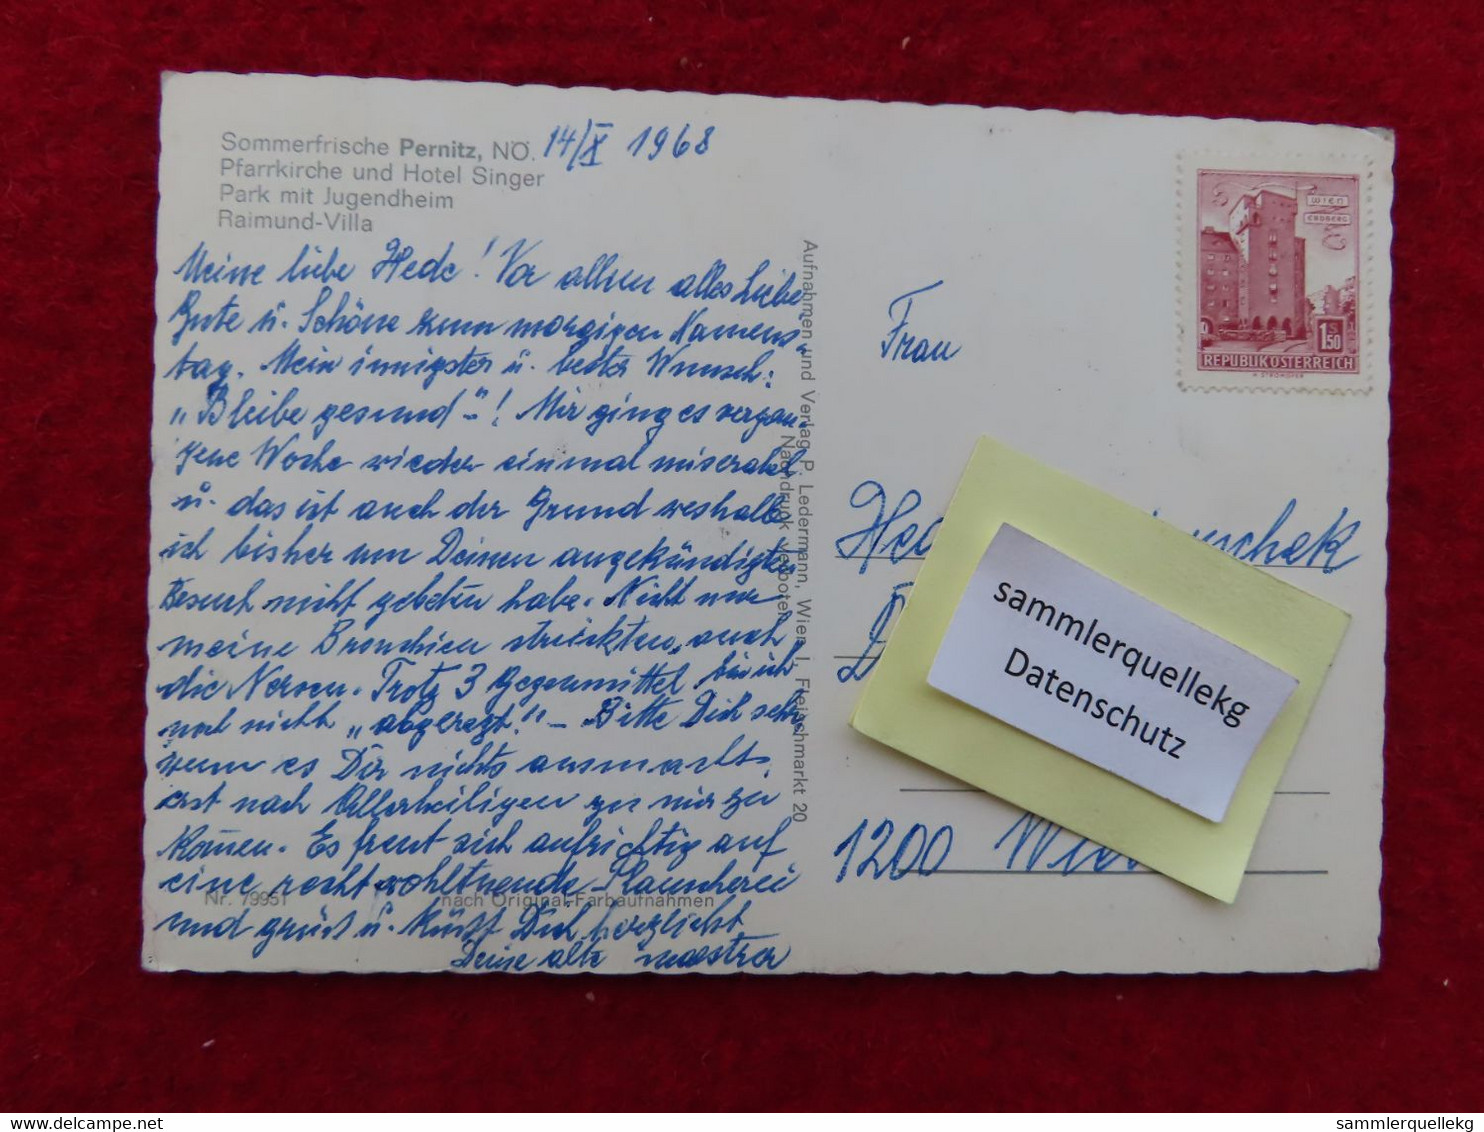 Sommerfrische Pernitz, NÖ. 14/X 1968
Pfarrkirche und Hotel Singer
Park mit Jugendheim
Raimund-Villa
Meine liebe Hede! Vor allem alles Liebe
Gute u. Schöne zum morgigen Namens-
tag. Mein innigster u. bester Wunsch:
„Bleibe gesund"! Mir ging es vergan-
gene Woche wieder einmal miserabel
u. das ist auch der Grund weshalb
ich bisher um Deinen angekündigten
Besuch nicht gebeten habe. Nicht nur
meine Bronchien streikten, auch
die Nerven. Trotz 3 Gegenmittel bin ich
noch nicht „abgeregt!" - Bitte Dich sehr
wenn es Dir nichts ausmacht,
erst nach Allerheiligen zu mir zu
kom̄en. Es freut sich aufrichtig auf
eine recht wohltuende Plauscherei
und grüßt u. küßt Dich herzlichst
Deine alte
Nr. 79951 nach Original-Farbaufnahmen
Aufnahmen und Verlag P. Ledermann, Wien I, Fleischmarkt 20
Nachdruck verboten
WIEN
ERDBERG
1.50 S
REPUBLIK ÖSTERREICH
Frau
1200 Wien
sammlerquellekg
Datenschutz
www.delcampe.net
sammlerquellekg